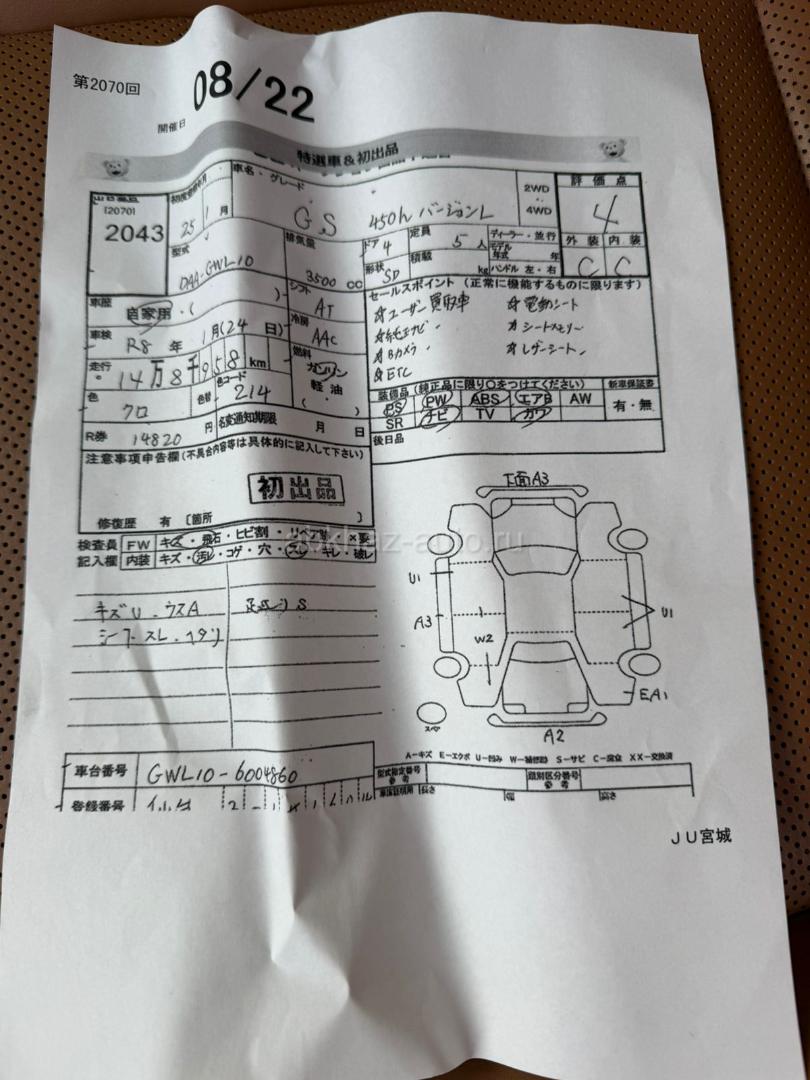 第2070回
08/22
開催日
特選車&初出品
[2070]
2043
25 1 月
車名・グレード
GS 450h バージョンL
2WD
4WD
評価点
4
外装 内装
C C
型式
DAA-GWL10
排気量
3500 cc
ドア 4
形状 SD
定員 5 人
積載 kg
ディーラー・並行
モデル年式 年
ハンドル 左・右
車歴 自家用・( )
シフト AT
冷房 AAC
燃料 ガソリン
軽油
( )
車検 R8 年 1月(24 日)
走行 14万8千958 km
色 クロ
色替
色コード 214
R券 14820 円
名変通知期限 月 日
セールスポイント(正常に機能するものに限ります)
☆ユーザー買取車 ☆電動シート
☆純正ナビ ☆シートメモリー
☆Bカメラ ☆レザーシート
☆ETC
装備品(純正品に限り○をつけてください) 新車保証書
PS PW ABS エアB AW 有・無
SR ナビ TV カワ
後日品
注意事項申告欄(不具合内容等は具体的に記入して下さい)
初出品
修復歴 有 〔箇所 〕
検査員 FW キズ・飛石・ヒビ割・リペア跡 ×要
記入欄 内装 キズ・汚れ・コゲ・穴・スレ・キレ・破レ
キズU・ウスA
シートスレ・ヘタリ
下面A3
U1
A3
W2
U1
EA1
A2
スペア
A-キズ E-エクボ U-凹み W-補修跡 S-サビ C-腐食 XX-交換済
車台番号 GWL10-6004860
登録番号
型式指定番号
参考
類別区分番号
参考
車庫証明用 長さ 幅 高さ
JU宮城
akhaz-auto.ru